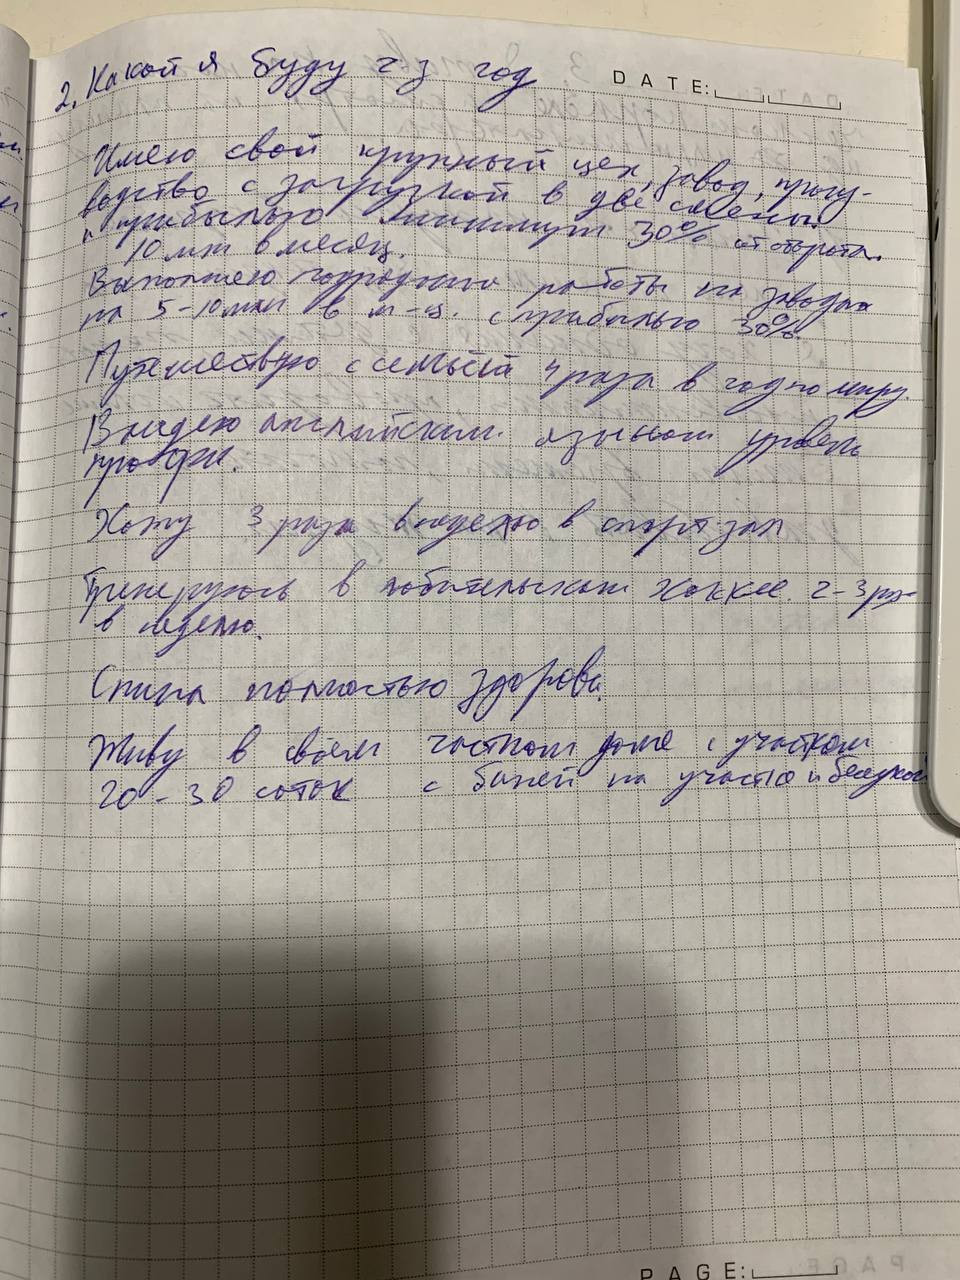 DATE:
2. Какой я буду ч-з год
Имею свой крупный цех, завод, произ-
водство с загрузкой в две смены
и прибылью минимум 30% от оборота.
10 млн в месяц.
Выполняю подрядные работы на заводах
на 5-10 млн в м-ц. с прибылью 30%.
Путешествую с семьёй 4 раза в год по миру.
Владею английским языком уровень
Хожу 3 раза в неделю в спорт зал
Тренеруюсь в любительском хоккее. 2-3 раз-
в неделю.
Спина полностью здорова.
Живу в своём частном доме с участком
20-30 соток с баней на участке и беседкой
PAGE: